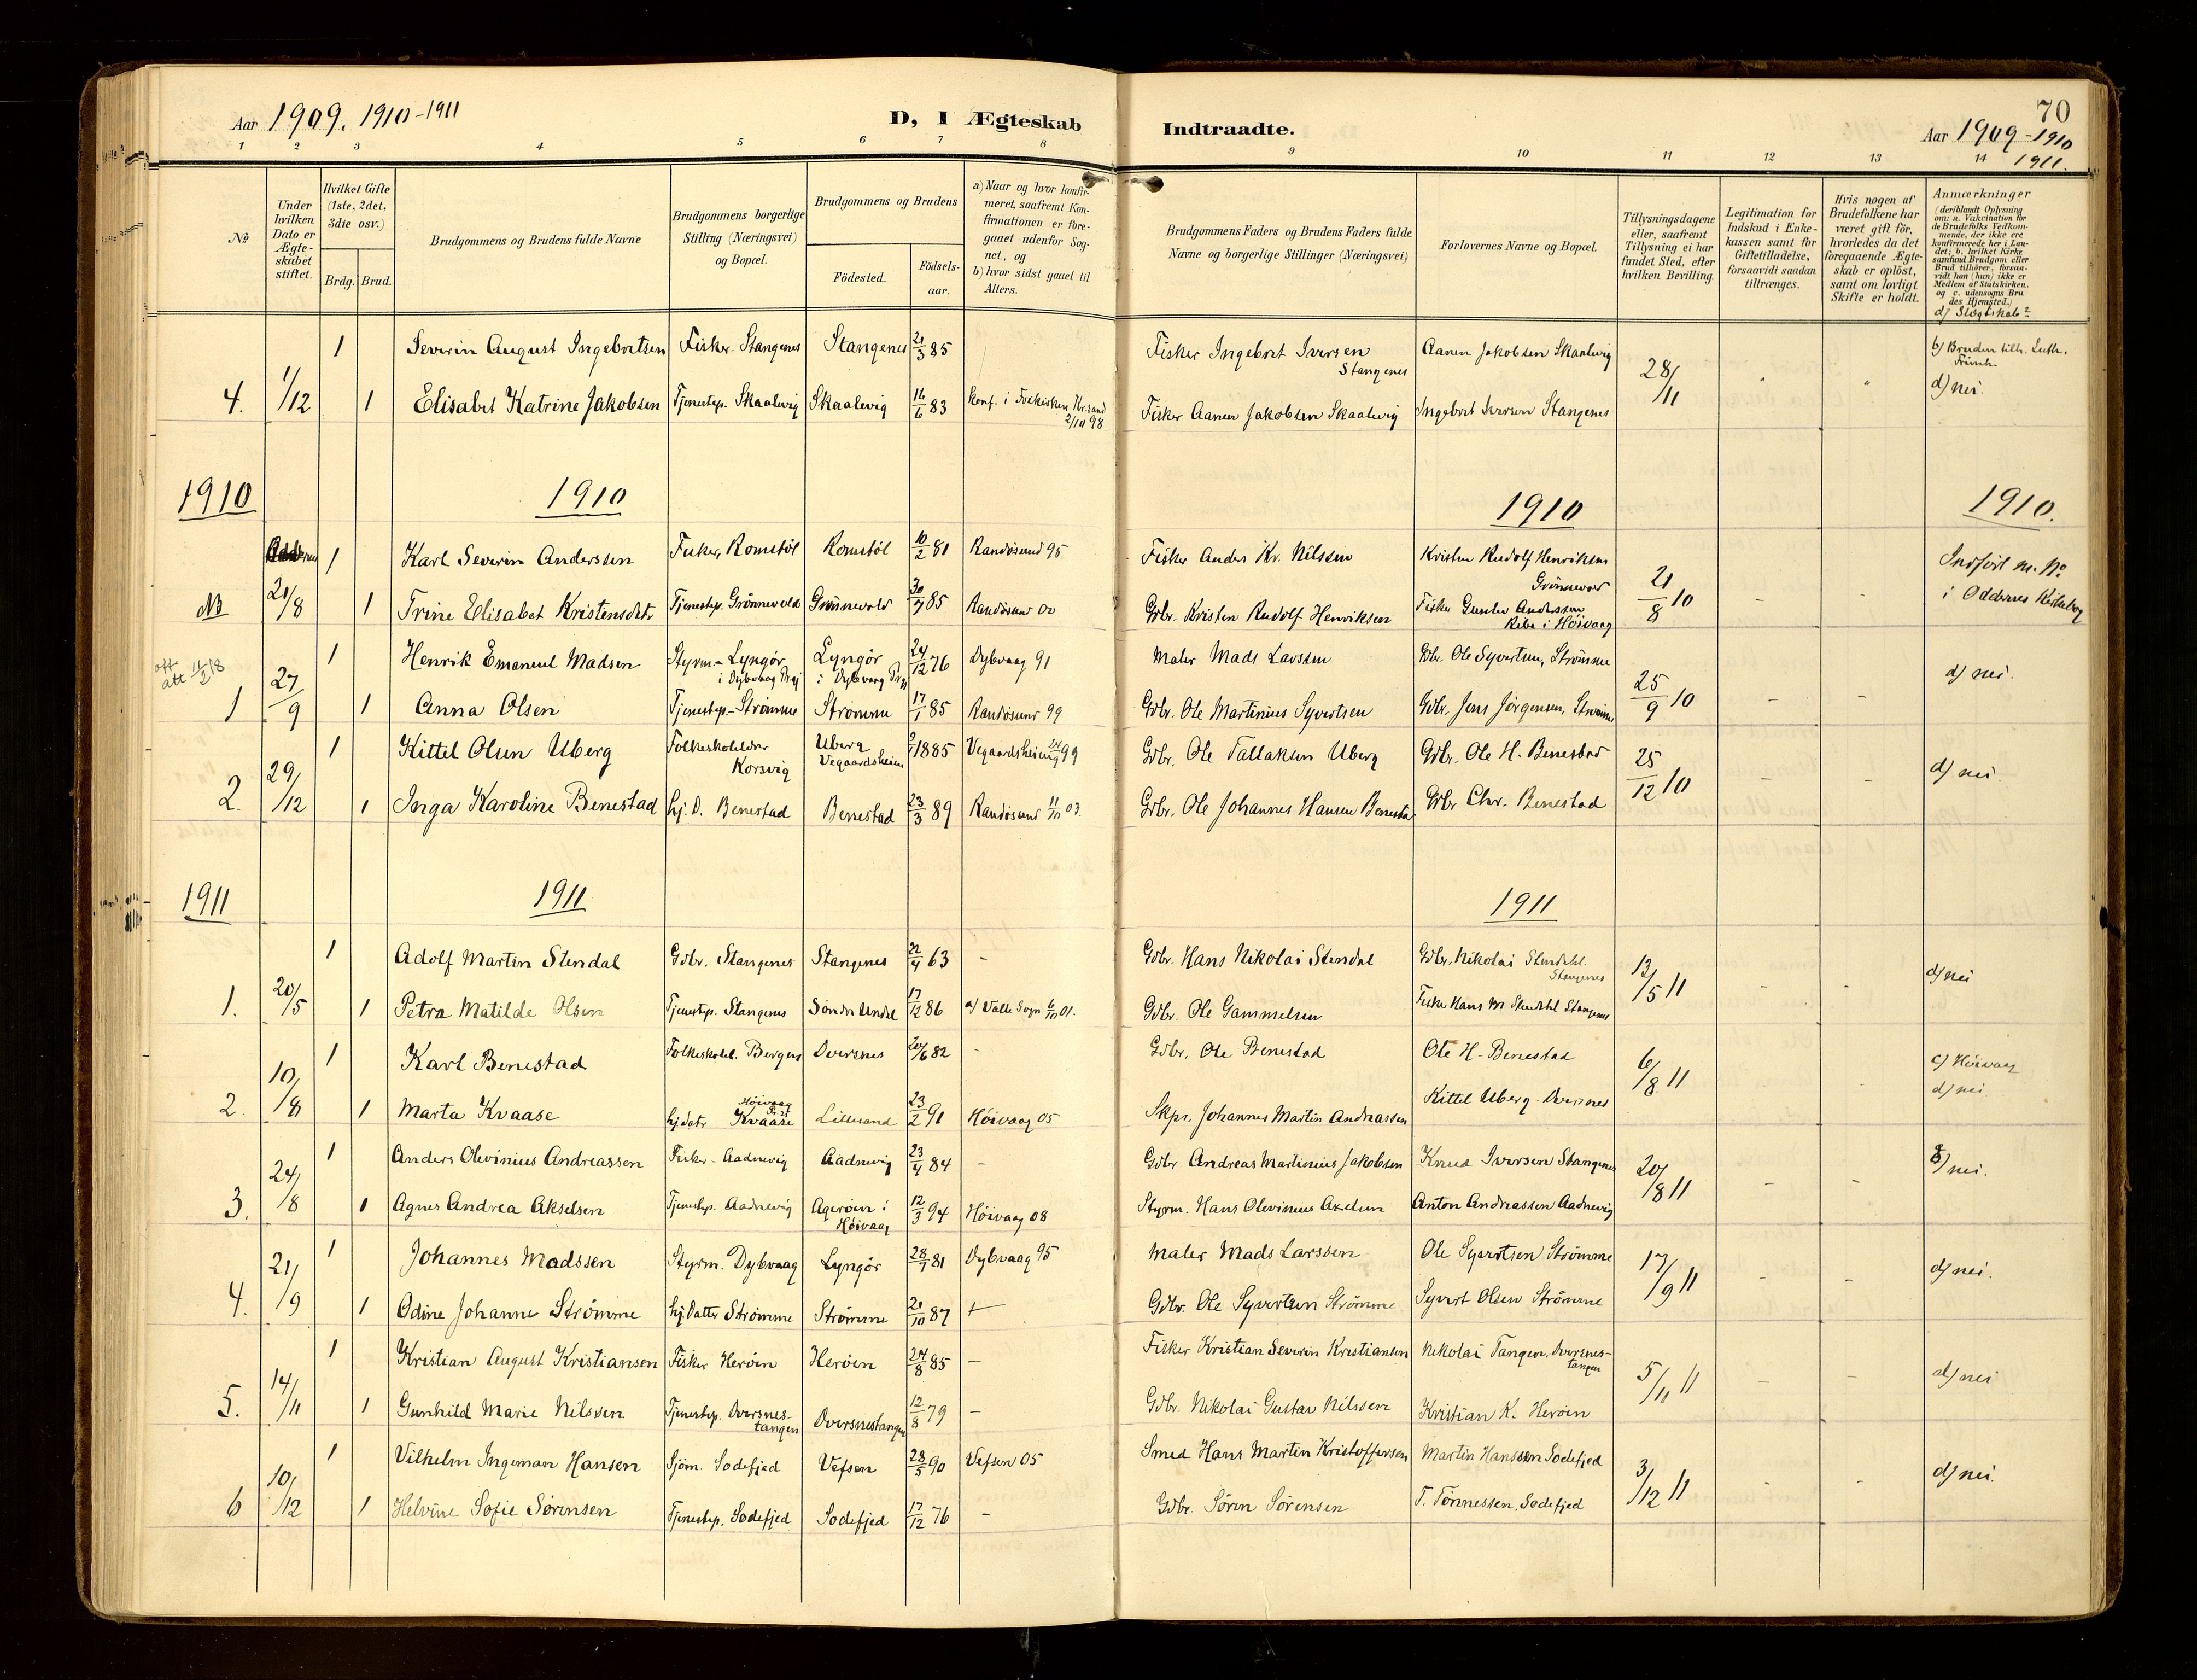 Aar 1909. 1910-1911
D, I Ægteskab
Indtraadte.
70
Aar 1909-1910
1911.
1 2 3 4 5 6 7 8 9 10 11 12 13 14
No
Under hvilken Dato er Ægteskabet stiftet.
Hvilket Gifte (1ste, 2det, 3die osv.)
Brdg. Brud.
Brudgommens og Brudens fulde Navne
Brudgommens borgerlige Stilling (Næringsvei) og Bopæl.
Brudgommens og Brudens
Födested.
Födselsaar.
a) Naar og hvor konfirmeret, saafremt Konfirmationen er foregaaet udenfor Sognet, og
b) hvor sidst gaaet til Alters.
Brudgommens Faders og Brudens Faders fulde Navne og borgerlige Stillinger (Næringsvei)
Forlovernes Navne og Bopæl.
Tillysningsdagene eller, saafremt Tillysning ei har fundet Sted, efter hvilken Bevilling.
Legitimation for Indskud i Enkekassen samt for Giftetilladelse, forsaavidt saadan tiltrænges.
Hvis nogen af Brudefolkene har været gift för, hvorledes da det foregaaende Ægteskab er oplöst, samt om lovligt Skifte er holdt.
Anmærkninger
(deriblandt Oplysning om: a. Vakcination for de Brudefolks Vedkommende, der ikke ere konfirmerede her i Landet; b. hvilket Kirkesamfund Brudgom eller Brud tilhörer, forsaavidt han (hun) ikke er Medlem af Statskirken. og c. udensogns Brudes Hjemsted.)
d) Slægtskab?
1 Severin August Ingebretsen Fisker. Stangenes Stangenes 21/3 85 Fisker Ingebret Iversen Stangenes Aanen Jakobsen Skaalevig b) Bruden tilh. Luth. Frimh.
4. 1/12 1 Elisabet Katrine Jakobsen Tjenestep. Skaalevig Skaalevig 16/6 83 konf. i Frikirken Kr.sand 2/10 98 Fisker Aanen Jakobsen Skaalevig Ingebret Iversen Stangenes 28/11 d) nei.
1910 1910 1910 1910.
1 Karl Severin Anderssen Fisker, Romstöl Romstöl 10/2 81 Randösund 95 Fisker Anders Kr. Nilssen Kristen Rudolf Henriksen Grönnevold Indfört m. No
NB 21/8 1 Trine Elisabet Kristensdtr Tjenestep. Grönnevold Grönnevold 30/7 85 Randösund 00 Gdbr. Kristen Rudolf Henriksen Fisker Gunder Anderssen Ribe i Höivaag 21/8 10 i Oddernes Kirkebog
1 Henrik Emanuel Madsen Styrm.- Lyngör i Dybvaag Prgj Lyngör i Dybvaag Prgj 24/12 76 Dybvaag 91 Maler Mads Larssen Gdbr. Ole Syvertsen, Strömme
att 11/2 18
1 27/9 1 Anna Olsen Tjenestep.- Strömme Strömme 17/1 85 Randösund 99 Gdbr. Ole Martinius Syvertsen Gdbr. Jens Jörgensen, Strömme 25/9 10 d) nei.
1 Kittel Olsen Uberg Folkeskolelærer Korsvig Uberg Vegaardsheien 1885 Vegaardsheien 99 Gdbr. Ole Tallaksen Uberg Gdbr. Ole H. Benestad
2. 29/12 1 Inga Karoline Benestad hj. D. Benestad Benestad 23/3 89 Randösund 11/10 03. Gdbr. Ole Johannes Hansen Benestad Gdbr Chr. Benestad 25/12 10 d) nei.
1911 1911 1911
1 Adolf Martin Stendal Gdbr. Stangenes Stangenes 22/4 63 - Gdbr. Hans Nikolai Stendal Gdbr. Nikolai Stendahl. Stangenes
1. 20/5 1 Petra Matilde Olsen Tjenestep. Stangenes Söndre Undal 17/12 86 a) Valle Sogn 6/10 01. Gdbr. Ole Gammelsen Fisker Hans M Stendahl Stangenes 13/5 11 d) nei
1 Karl Benestad Folkeskolel. Bergen Dversnes 20/6 82 - Gdbr. Ole Benestad Ole H. Benestad c) Höivaag
2. 10/8 1 Marta Kvaase hj datr Höivaag Prgj Kvaase Lillesand 23/2 91 Höivaag 05 Skpr. Johannes Martin Andreassen Kittel Uberg. Dversnes 6/8 11 d) nei.
1 Anders Olevinius Andreassen Fisker - Aadnevig Aadnevig 23/4 84 - Gdbr. Andreas Martinius Jakobsen Knud Iversen Stangenes d) nei.
3. 24/8 1 Agnes Andrea Akselsen Tjenestep. Aadnevig Ageröen i Höivaag 12/3 94 Höivaag 08 Styrm. Hans Olevinius Axelsen Anton Andreassen Aadnevig 20/8 11
1 Johannes Madssen Styrm. Dybvaag Lyngör 28/7 81 Dybvaag 95 Maler Mads Larssen Ole Syvertsen Strömme
4. 21/9 1 Odine Johanne Strömme hj. Datter Strömme Strömme 21/10 87 Gdbr. Ole Syvertsen Strömme Syvert Olsen Strömme 17/9 11 d) nei.
1 Kristian August Kristiansen Fisker Heröen Heröen 24/8 85 - Fisker Kristian Severin Kristiansen Nikolai Tangen. Dversnestangen
5. 14/11 1 Gunhild Marie Nilssen Tjenestep. Dversnestangen Dversnestangen 12/8 79 - Gdbr. Nikolai Gustav Nilssen Kristian K. Heröen 5/11 11 d) nei
1 Vilhelm Ingeman Hansen Sjöm. Sodefjed Vefsen 28/5 90 Vefsen 05 Smed Hans Martin Kristoffersen Martin Hanssen Sodefjed
6 10/12 1 Helvine Sofie Sörensen Tjenestep. Sodefjed Sodefjed 17/12 76 - Gdbr. Sören Sörensen T. Tönnessen, Sodefjed 3/12 11 d) nei.